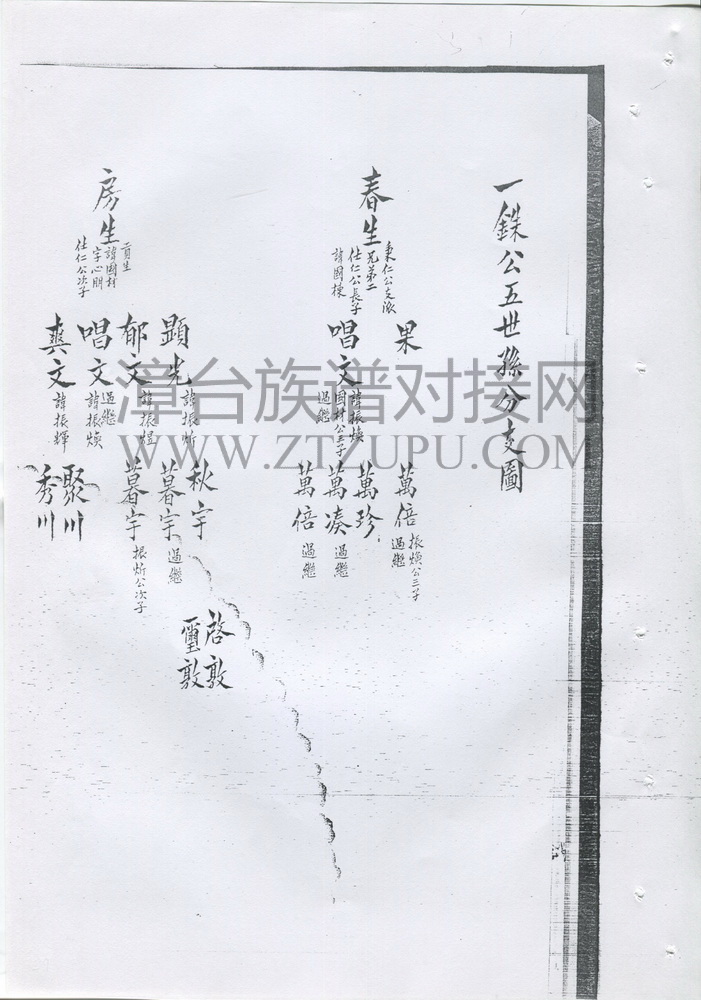 一銖公五世孫分支圖
春生
秉仁公支派
兄弟二
仕仁公長子
諱國棟
果
萬倍
振煥公三子
過繼
唱文
諱振煥
國材公三子
過繼
萬珍
萬湊
過繼
萬倍
過繼
房生
貢生
諱國材
字心朋
仕仁公次子
顯光
諱振炘
秋宇
啓敦
璽敦
暮宇
過繼
郁文
諱振煜
暮宇
振炘公次子
唱文
過繼
諱振煥
爽文
諱振輝
聚川
秀川
漳台族谱对接网
WWW.ZTZUPU.COM